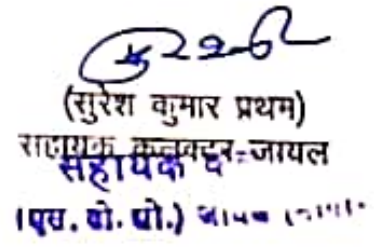 (सुरेश कुमार प्रथम)
सहायक कलक्टर-जायल
सहायक
(एस. डी. ओ.) जायल